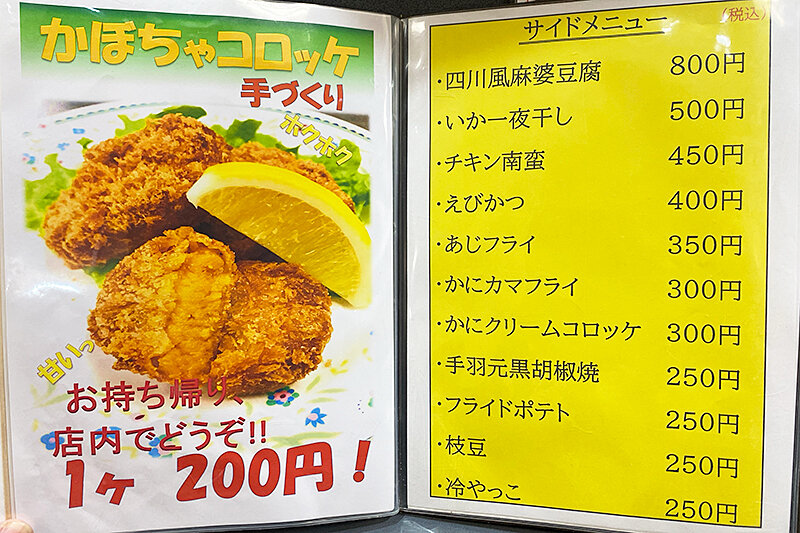 かぼちゃコロッケ
手づくり
ホクホク
甘いっ
お持ち帰り、
店内でどうぞ!!
1ヶ 200円!
サイドメニュー (税込)
・四川風麻婆豆腐 800円
・いか一夜干し 500円
・チキン南蛮 450円
・えびかつ 400円
・あじフライ 350円
・かにカマフライ 300円
・かにクリームコロッケ 300円
・手羽元黒胡椒焼 250円
・フライドポテト 250円
・枝豆 250円
・冷やっこ 250円